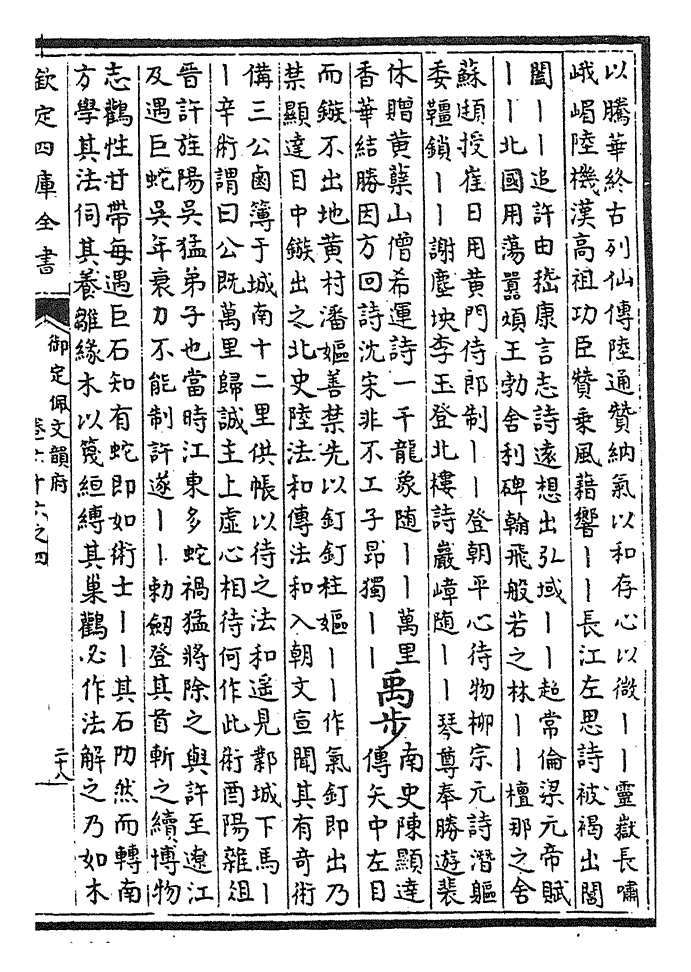 以騰華終古列仙傳陸通贊納氣以和存心以微丨丨靈嶽長嘯
峨嵋陸機漢高祖功臣贊乘風藉響丨丨長江左思詩被褐出閶
闔丨丨追許由嵇康言志詩遠想出弘域丨丨超常倫梁元帝賦
丨丨北國用蕩囂煩王勃舍利碑翰飛般若之林丨丨檀那之舍
蘇頲授崔日用黄門侍郎制丨丨登朝平心待物柳宗元詩潛軀
委韁鎖丨丨謝塵坱李玉登北樓詩巖嶂随丨丨琴尊奉勝遊裴
休贈黄蘗山僧希運詩一千龍象随丨丨萬里
香華結勝因方回詩沈宋非不工子昻獨丨丨
禹步
南史陳顯達
傳矢中左目
而鏃不出地黄村潘嫗善禁先以釘釘柱嫗丨丨作氣釘即出乃
禁顯達目中鏃出之北史陸法和傳法和入朝文宣聞其有奇術
備三公鹵簿于城南十二里供帳以待之法和遥見鄴城下馬丨
丨辛術謂曰公既萬里歸誠主上虚心相待何作此術酉陽雜俎
晉許旌陽吳猛弟子也當時江東多蛇禍猛將除之與許至遼江
及遇巨蛇吳年衰力不能制許遂丨丨勅劒登其首斬之續博物
志鸛性甘帶每遇巨石知有蛇即如術士丨丨其石阞然而轉南
方學其法伺其養雛緣木以篾縆縛其巢鸛必作法解之乃如木
欽定四庫全書
御定佩文韻府
卷六十六之四
二十八